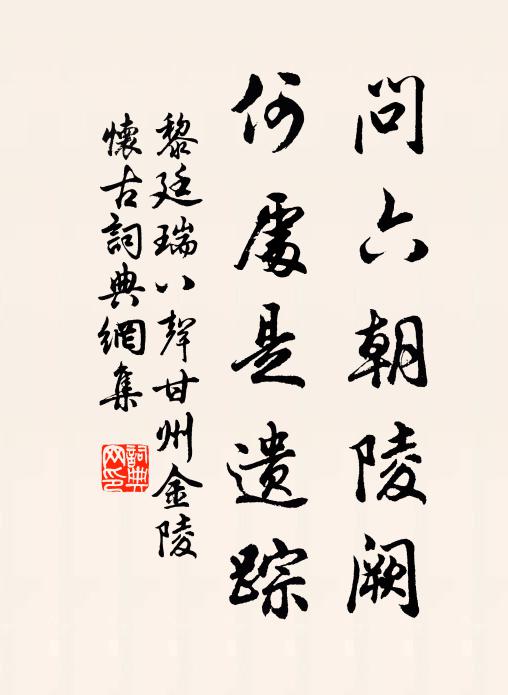 問六朝陵阙
何處是遺踪
黎廷瑞八聲甘州金陵
懷古詞典網集
詞典网印